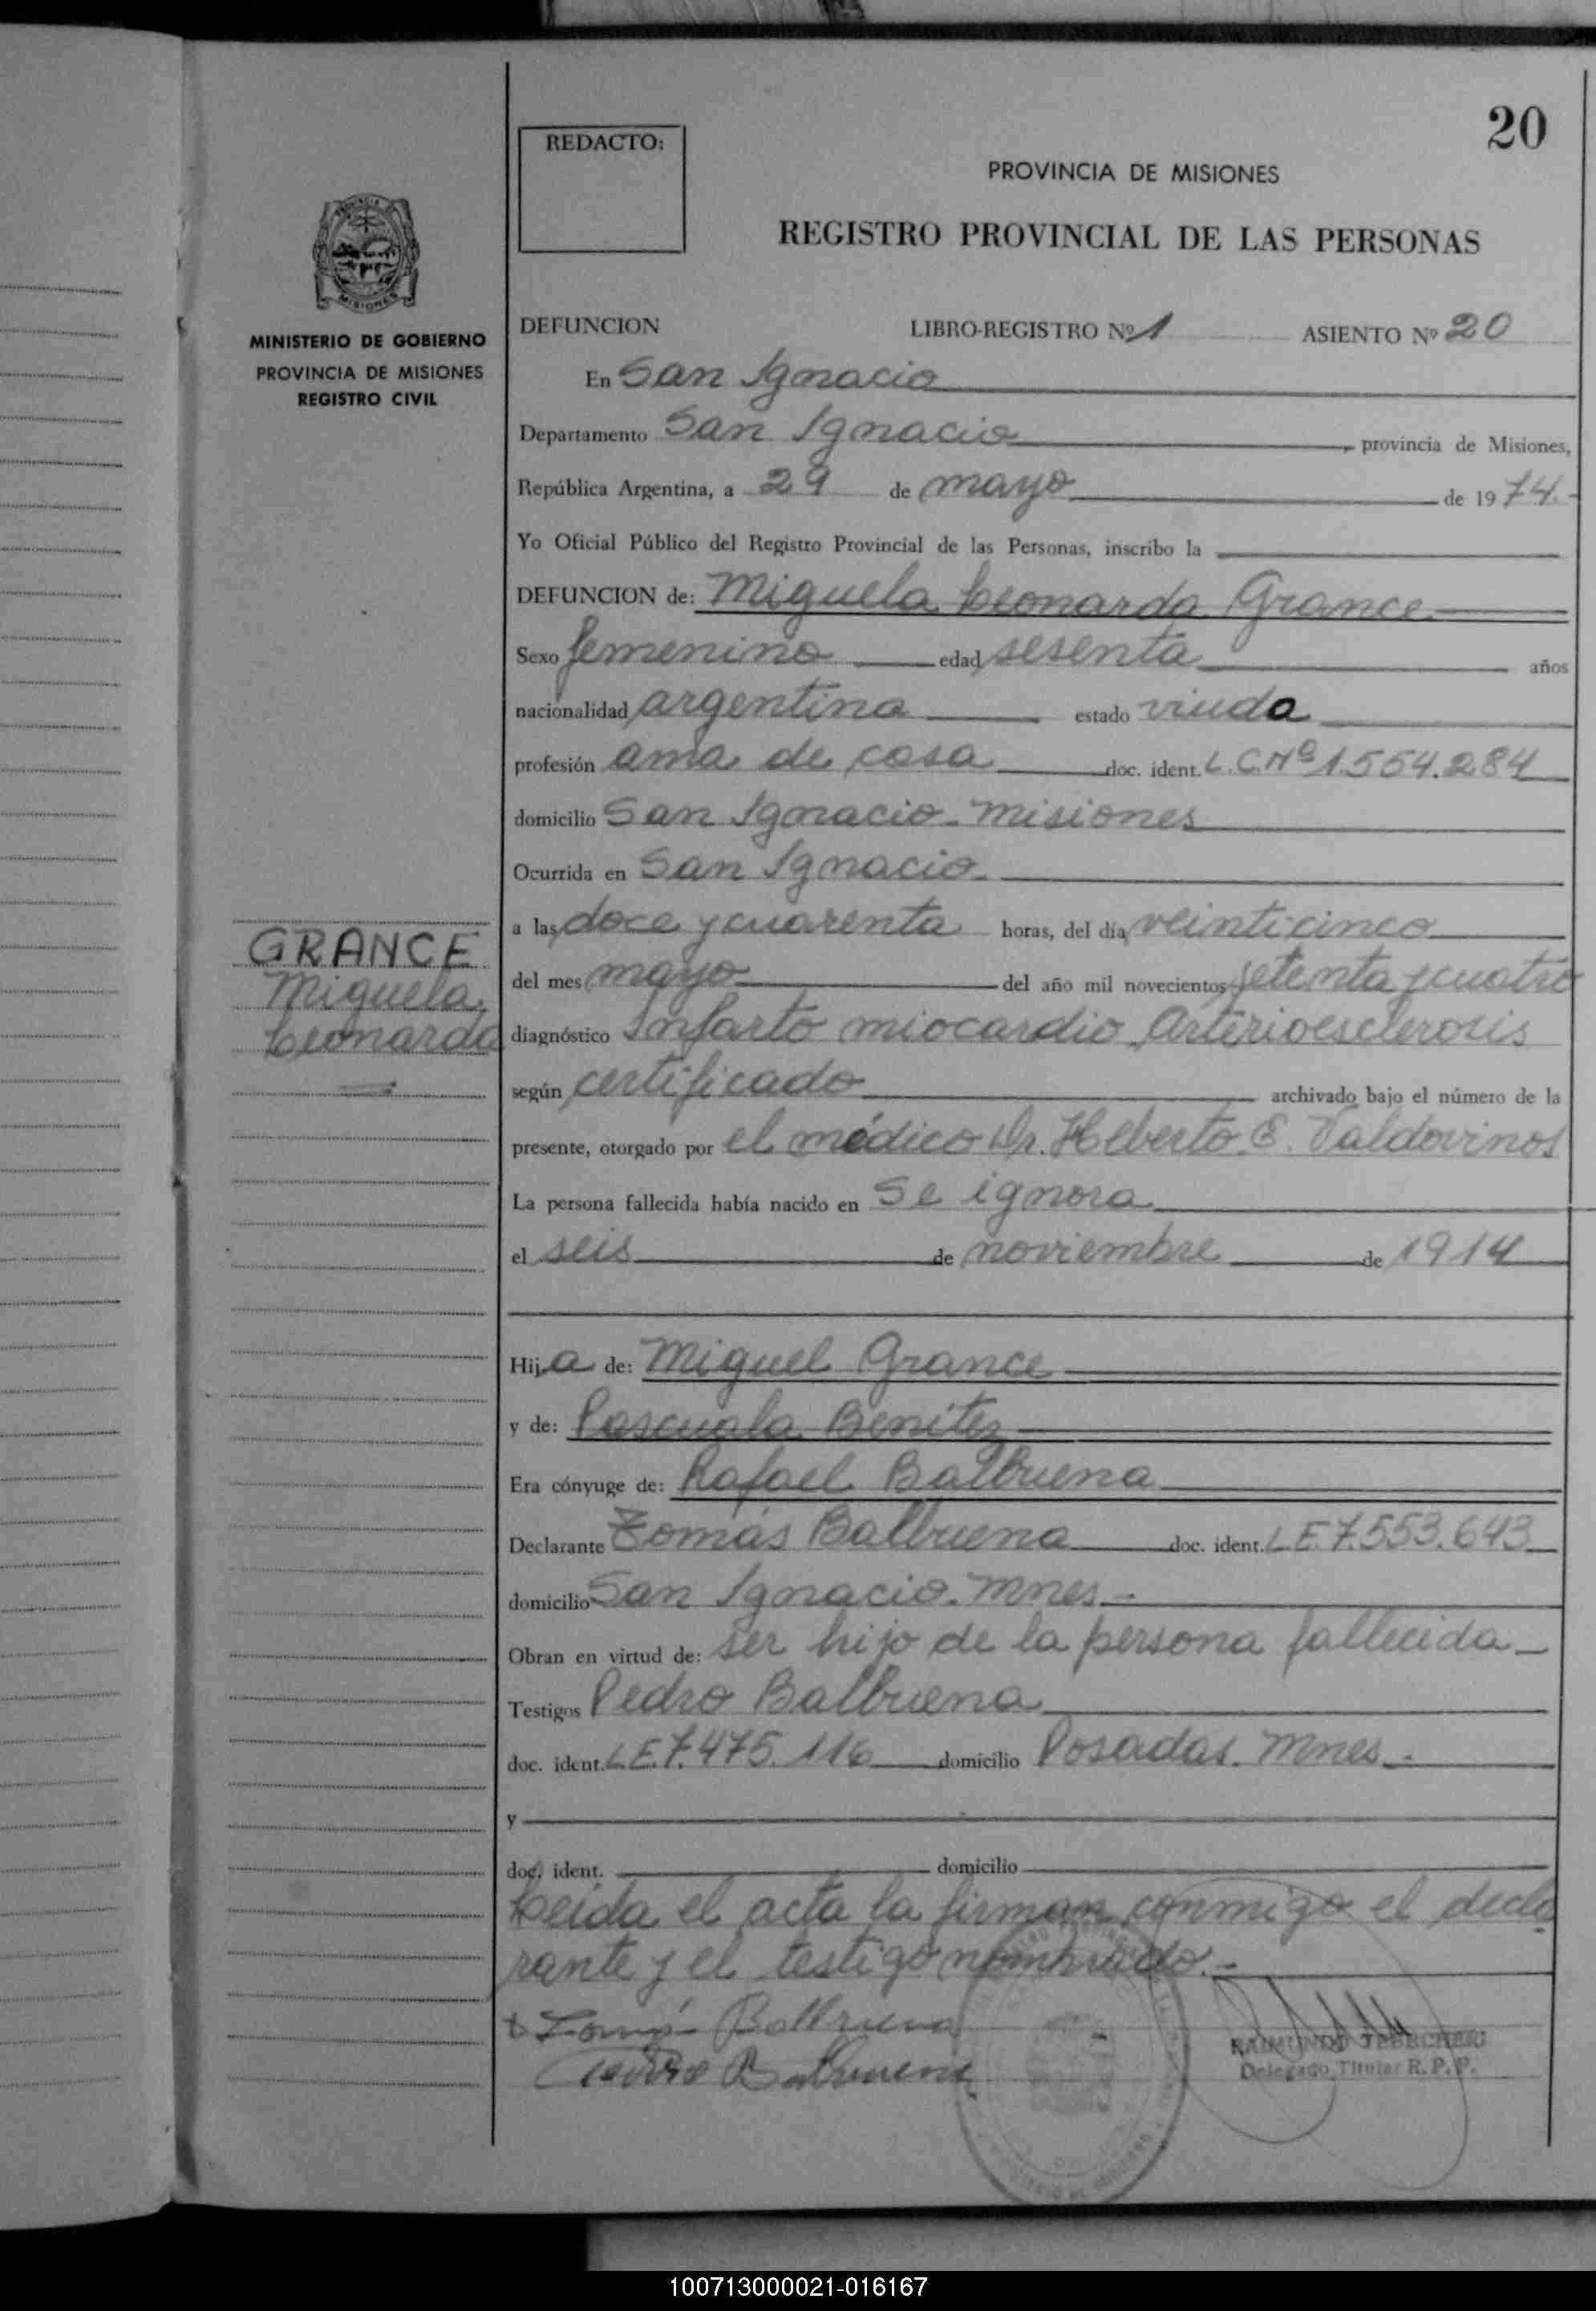 20
REDACTO:
PROVINCIA DE MISIONES
REGISTRO PROVINCIAL DE LAS PERSONAS
MISIONES
MINISTERIO DE GOBIERNO
PROVINCIA DE MISIONES
REGISTRO CIVIL
DEFUNCION LIBRO-REGISTRO Nº 1 ASIENTO Nº 20
En San Ignacio
Departamento San Ignacio, provincia de Misiones,
República Argentina, a 29 de mayo de 1974.
Yo Oficial Público del Registro Provincial de las Personas, inscribo la
DEFUNCION de: Miguela Leonarda Grance
Sexo femenino edad sesenta años
nacionalidad argentina estado viuda
profesión ama de casa doc. ident. L.C.Nº 1.554.284
domicilio San Ignacio - Misiones
Ocurrida en San Ignacio
a las doce y cuarenta horas, del día veinticinco
del mes mayo del año mil novecientos setenta y cuatro
GRANCE
Miguela
Leonarda
diagnóstico Infarto miocardio Arterioesclerosis
según certificado archivado bajo el número de la
presente, otorgado por el médico Dr. Heberto E. Valdovinos
La persona fallecida había nacido en Se ignora
el seis de noviembre de 1914
Hija de: Miguel Grance
y de: Pascuala Benitez
Era cónyuge de: Rafael Balbuena
Declarante Tomás Balbuena doc. ident. L.E.7.553.643
domicilio San Ignacio. Mnes.-
Obran en virtud de: ser hijo de la persona fallecida-
Testigos Pedro Balbuena
doc. ident. L.E.7.475.116 domicilio Posadas. Mnes.-
y
doc. ident. domicilio
Leida el acta la firman conmigo el decla
rante y el testigo nombrado.-
Tomás Balbuena
Pedro Balbuena
RAIMUNDO
Delegado Titular R.P.P.
100713000021-016167